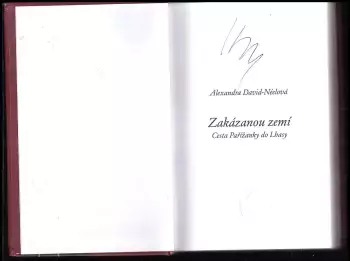 Alexandra David-Néelová
Zakázanou zemí
Cesta Pařížanky do Lhasy